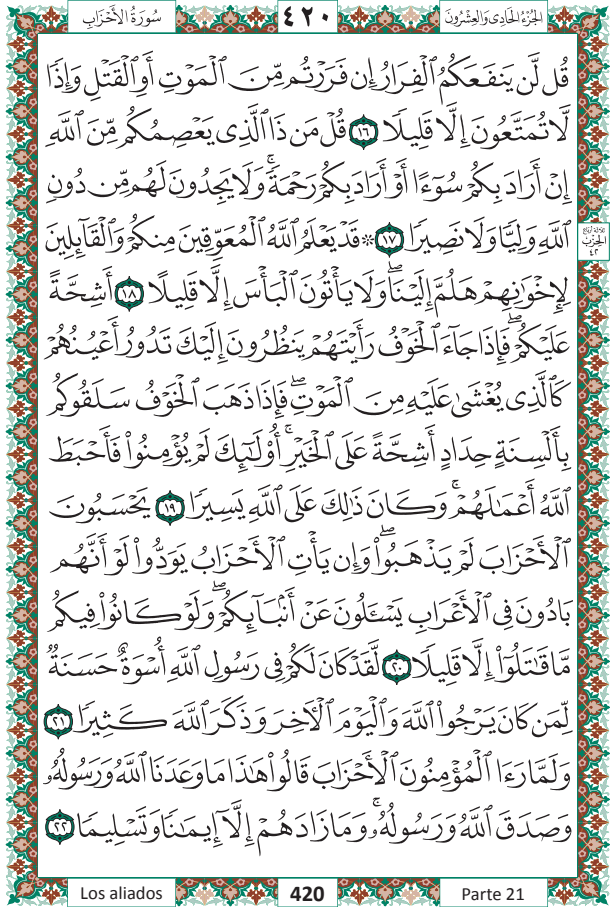 سُورَةُ الأَحْزَابِ ٤٢٠ الجُزْءُ الحَادِى وَالعِشْرُونَ
قُل لَّن يَنفَعَكُمُ ٱلْفِرَارُ إِن فَرَرْتُم مِّنَ ٱلْمَوْتِ أَوِ ٱلْقَتْلِ وَإِذًا
لَّا تُمَتَّعُونَ إِلَّا قَلِيلًا ١٦ قُلْ مَن ذَا ٱلَّذِى يَعْصِمُكُم مِّنَ ٱللَّهِ
إِنْ أَرَادَ بِكُمْ سُوٓءًا أَوْ أَرَادَ بِكُمْ رَحْمَةً ۚ وَلَا يَجِدُونَ لَهُم مِّن دُونِ
ٱللَّهِ وَلِيًّا وَلَا نَصِيرًا ١٧ ۞ قَدْ يَعْلَمُ ٱللَّهُ ٱلْمُعَوِّقِينَ مِنكُمْ وَٱلْقَآئِلِينَ
ثلاثة أرباع
الحِزْب
٤٢
لِإِخْوَٰنِهِمْ هَلُمَّ إِلَيْنَا ۖ وَلَا يَأْتُونَ ٱلْبَأْسَ إِلَّا قَلِيلًا ١٨ أَشِحَّةً
عَلَيْكُمْ ۖ فَإِذَا جَآءَ ٱلْخَوْفُ رَأَيْتَهُمْ يَنظُرُونَ إِلَيْكَ تَدُورُ أَعْيُنُهُمْ
كَٱلَّذِى يُغْشَىٰ عَلَيْهِ مِنَ ٱلْمَوْتِ ۖ فَإِذَا ذَهَبَ ٱلْخَوْفُ سَلَقُوكُم
بِأَلْسِنَةٍ حِدَادٍ أَشِحَّةً عَلَى ٱلْخَيْرِ ۚ أُو۟لَٰٓئِكَ لَمْ يُؤْمِنُوا۟ فَأَحْبَطَ
ٱللَّهُ أَعْمَٰلَهُمْ ۚ وَكَانَ ذَٰلِكَ عَلَى ٱللَّهِ يَسِيرًا ١٩ يَحْسَبُونَ
ٱلْأَحْزَابَ لَمْ يَذْهَبُوا۟ ۖ وَإِن يَأْتِ ٱلْأَحْزَابُ يَوَدُّوا۟ لَوْ أَنَّهُم
بَادُونَ فِى ٱلْأَعْرَابِ يَسْـَٔلُونَ عَنْ أَنۢبَآئِكُمْ ۖ وَلَوْ كَانُوا۟ فِيكُم
مَّا قَٰتَلُوٓا۟ إِلَّا قَلِيلًا ٢٠ لَّقَدْ كَانَ لَكُمْ فِى رَسُولِ ٱللَّهِ أُسْوَةٌ حَسَنَةٌ
لِّمَن كَانَ يَرْجُوا۟ ٱللَّهَ وَٱلْيَوْمَ ٱلْءَاخِرَ وَذَكَرَ ٱللَّهَ كَثِيرًا ٢١
وَلَمَّا رَءَا ٱلْمُؤْمِنُونَ ٱلْأَحْزَابَ قَالُوا۟ هَٰذَا مَا وَعَدَنَا ٱللَّهُ وَرَسُولُهُۥ
وَصَدَقَ ٱللَّهُ وَرَسُولُهُۥ ۚ وَمَا زَادَهُمْ إِلَّآ إِيمَٰنًا وَتَسْلِيمًا ٢٢
Los aliados 420 Parte 21